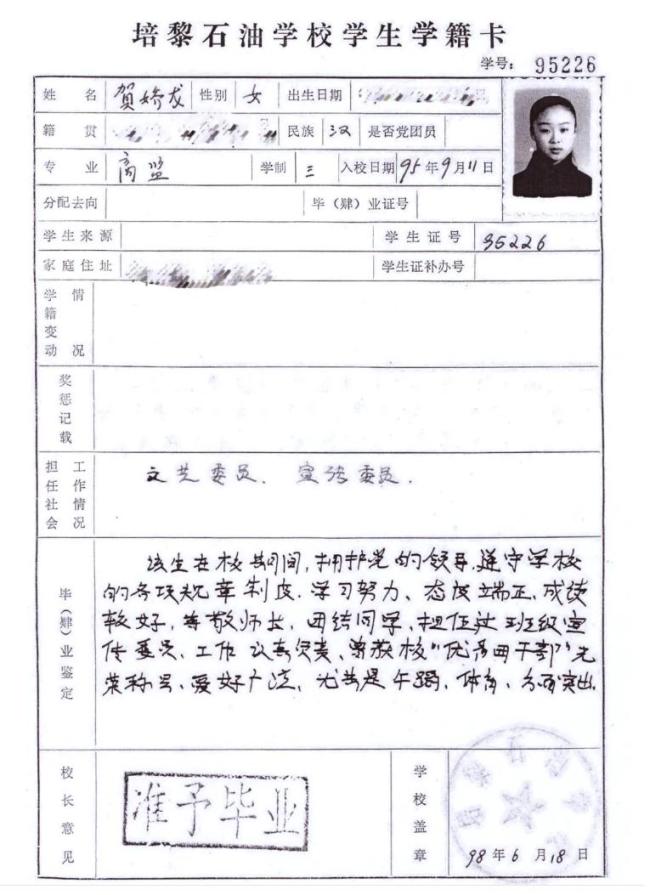 培黎石油学校学生学籍卡
学号: 95226
姓名 贺娇龙 性别 女 出生日期
籍贯 民族 汉 是否党团员
专业 商监 学制 三 入校日期 95年9月11日
分配去向 毕（肄）业证号
学生来源 学生证号 95226
家庭住址 学生证补办号
学籍变动情况
奖惩记载
担任社会工作情况 文艺委员、宣传委员.
毕（肄）业鉴定
该生在校期间,拥护党的领导.遵守学校
的各项规章制度.学习努力、态度端正、成绩
较好,尊敬师长,团结同学、担任过班级宣
传委员、工作认真负责、曾获校"优秀团干部"光
荣称号、爱好广泛、尤其是午蹈、体育、方面突出.
校长意见 准予毕业 学校盖章 98年6月18日